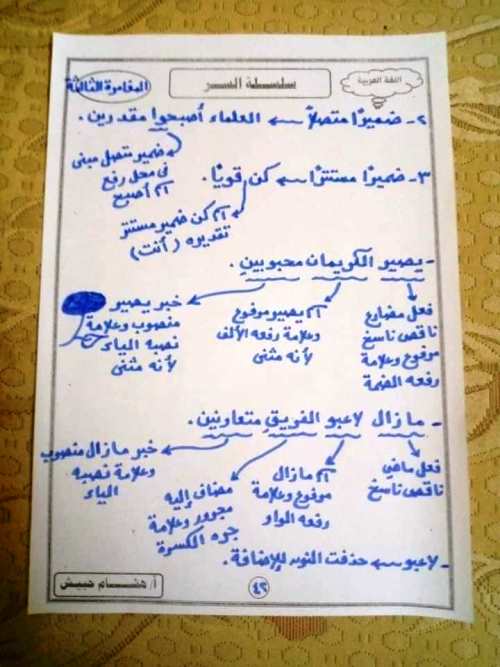 اللغة العربية
سلسلة السر
المغامرة الثالثة
٢- ضميرًا متصلاً ← العلماء أصبحوا مقدرين.
ضمير متصل مبنى
فى محل رفع
اسم أصبح
٣- ضميرًا مستترًا ← كن قويًا.
اسم كن ضمير مستتر
تقديره (أنت)
- يصير الكريمان محبوبين.
فعل مضارع
ناقص ناسخ
مرفوع وعلامة
رفعه الضمة
اسم يصير مرفوع
وعلامة رفعه الألف
لأنه مثنى
خبر يصير
منصوب وعلامة
نصبه الياء
لأنه مثنى
- مازال لاعبو الفريق متعاونين.
فعل ماضي
ناقص ناسخ
اسم مازال
مرفوع وعلامة
رفعه الواو
مضاف إليه
مجرور وعلامة
جره الكسرة
خبر مازال منصوب
وعلامة نصبه
الياء
- لاعبو ← حذفت النون للإضافة.
٤٢
أ/ هشام حبيش